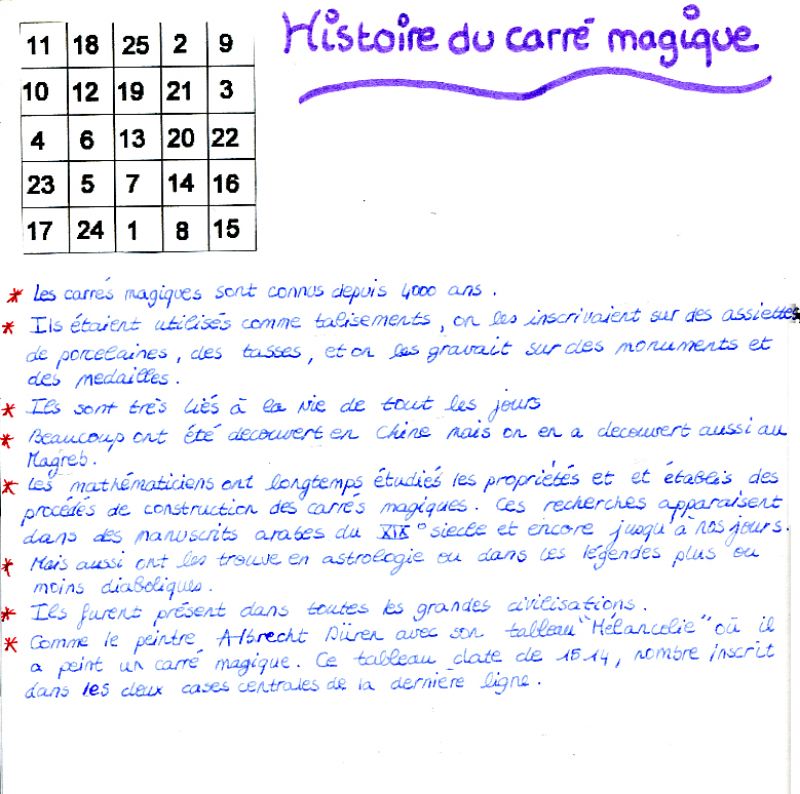 Histoire du carré magique
11 18 25 2 9
10 12 19 21 3
4 6 13 20 22
23 5 7 14 16
17 24 1 8 15
* Les carrés magiques sont connus depuis 4000 ans.
* Ils étaient utilisés comme talisements, on les inscrivaient sur des assiettes
de porcelaines, des tasses, et on les gravait sur des monuments et
des medailles.
* Ils sont très liés à la vie de tout les jours
* Beaucoup ont été decouvert en Chine mais on en a decouvert aussi au
Magreb.
* Les mathématiciens ont longtemps étudiés les propriétés et et établis des
procédés de construction des carrés magiques. Ces recherches apparaisent
dans des manuscrits arabes du XIX° siecle et encore jusqu'à nos jours.
* Mais aussi ont les trouve en astrologie ou dans les légendes plus ou
moins diaboliques.
* Ils furent présent dans toutes les grandes civilisations.
* Comme le peintre Albrecht Düren avec son tableau "Mélancolie" où il
a peint un carré magique. Ce tableau date de 1514, nombre inscrit
dans les deux cases centrales de la dernière ligne.